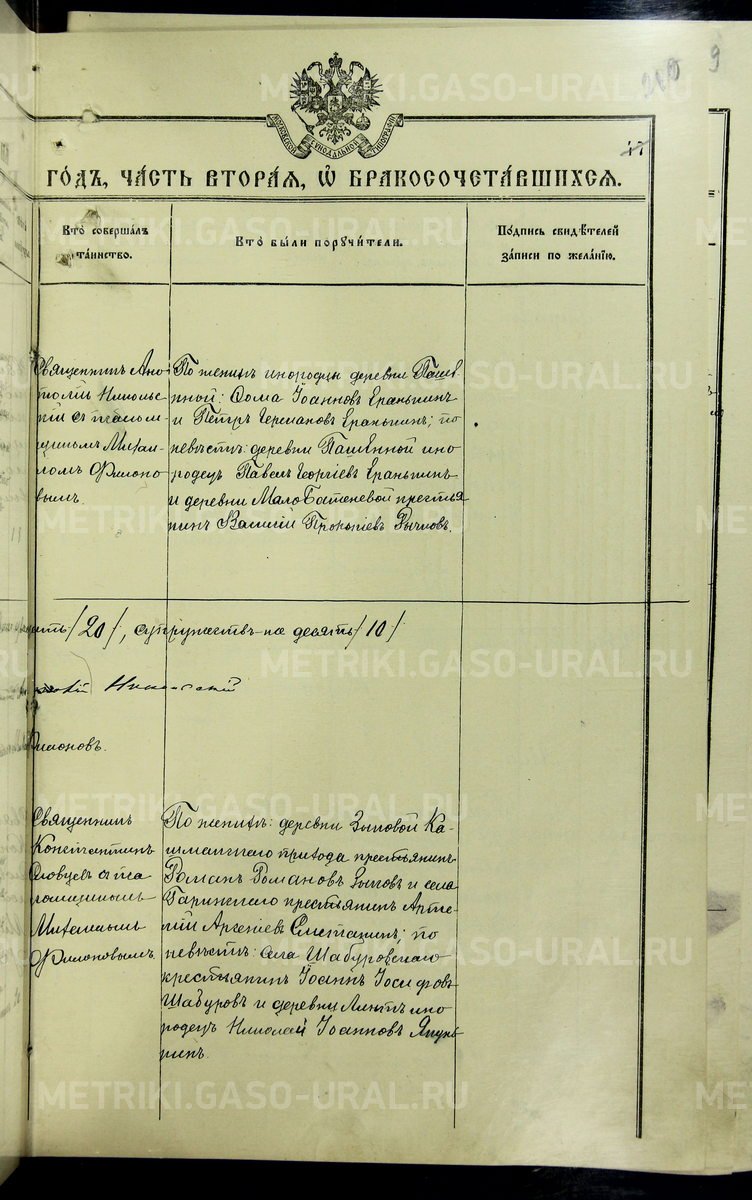 9
17
МОСКОВСКОЙ СИНОДАЛЬНОЙ ТИПОГРАФІИ
ГО́ДЪ, ЧА́СТЬ ВТОРА́Я, Ѡ БРАКОСОЧЕТА́ВШИХСЯ.
Кто̀ соверша́лъ
та́инство.
Кто̀ бы́ли порꙋчи́тели.
По́дпись свидѣ́телей
за́писи по жела́нїю.
Священникъ Ана-
толій Никольс-
кій съ псалом-
щикомъ Михаи-
ломъ Филоно-
вымъ.
По женихѣ инородцы деревни Пашен-
ной: Ѳома Іоанновъ Еранькинъ
и Петръ Германовъ Еранькинъ; по
невѣстѣ: деревни Пашенной ино-
родецъ Павелъ Георгіевъ Еранькинъ
и деревни Мало Батеневой крестья-
нинъ Василій Прокопіевъ Рычковъ.
/20/, супружествъ-же десять /10/
Филоновъ.
Священникъ
Константинъ
Словцевъ съ пса-
ломщикомъ
Михаиломъ
Филоновымъ.
По женихѣ: деревни Зыковой Ка-
шмакскаго прихода крестьянинъ
Романъ Романовъ Зыковъ и села
Гаринскаго крестьянинъ Арте-
мій Арсеніевъ Сметанинъ; по
невѣстѣ: села Шабуровскаго
крестьянинъ Іоаннъ Іосифовъ
Шабуровъ и деревни Линтъ ино-
родецъ Николай Іоанновъ Япунь-
кинъ.
METRIKI.GASO-URAL.RU